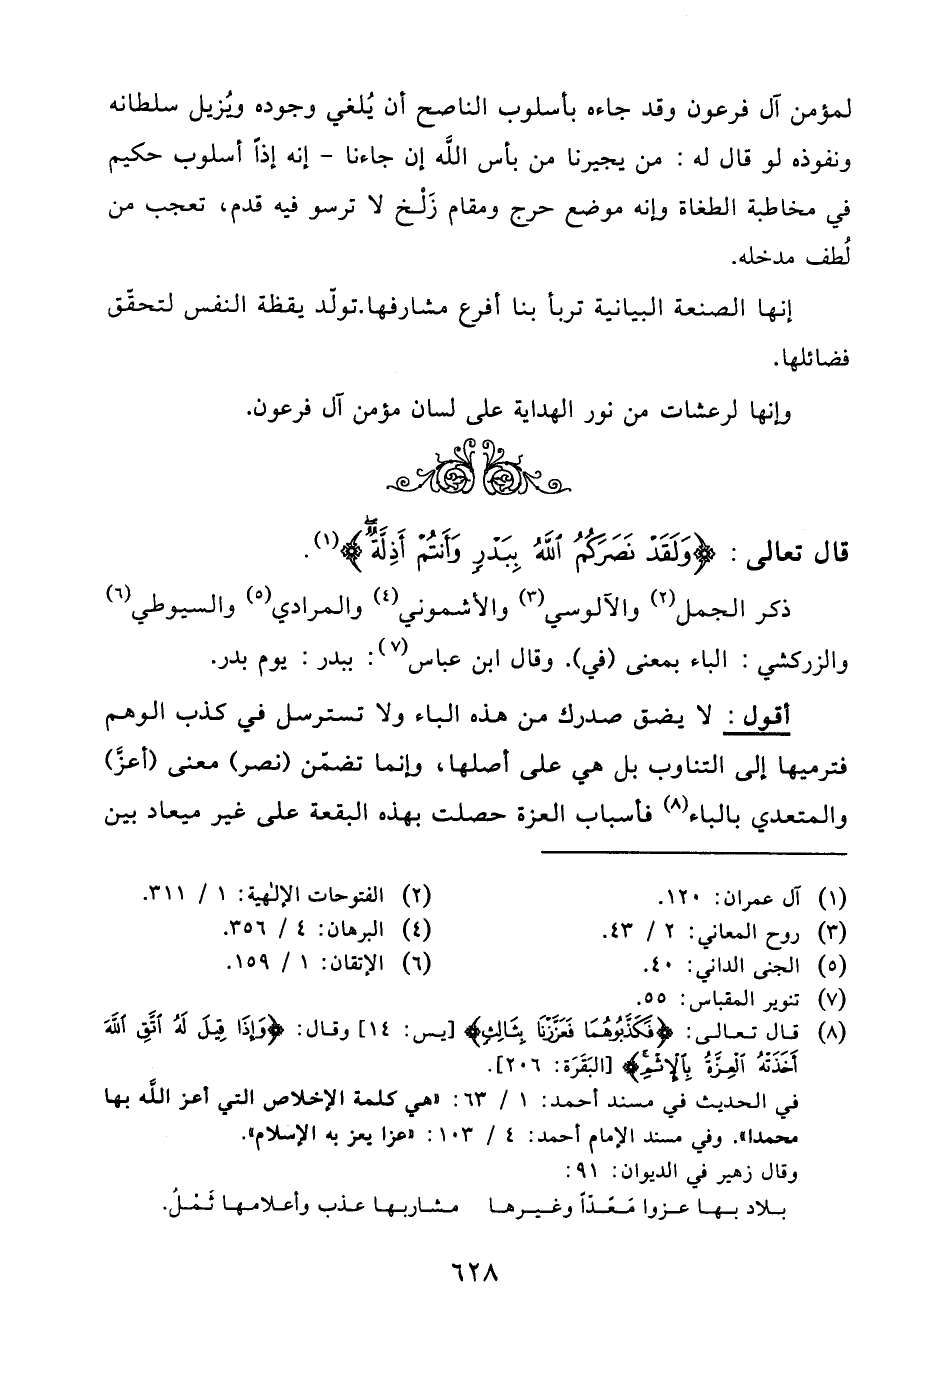 لمؤمن آل فرعون وقد جاءه بأسلوب الناصح أن يُلغي وجوده ويُزيل سلطانه
ونفوذه لو قال له : من يجيرنا من بأس اللَّه إن جاءنا – إنه إذاً أسلوب حكيم
في مخاطبة الطغاة وإنه موضع حرج ومقام زَلْخ لا ترسو فيه قدم، تعجب من
لُطف مدخله.
إنها الصنعة البيانية تربأ بنا أفرع مشارفها.تولّد يقظة النفس لتحقّق
فضائلها.
وإنها لرعشات من نور الهداية على لسان مؤمن آل فرعون.
قال تعالى : ﴿وَلَقَدْ نَصَرَكُمُ ٱللَّهُ بِبَدْرٍ وَأَنتُمْ أَذِلَّةٌ ۖ﴾(١).
ذكر الجمل(٢) والآلوسي(٣) والأشموني(٤) والمرادي(٥) والسيوطي(٦)
والزركشي : الباء بمعنى (في). وقال ابن عباس(٧): ببدر : يوم بدر.
أقول : لا يضق صدرك من هذه الباء ولا تسترسل في كذب الوهم
فترميها إلى التناوب بل هي على أصلها، وإنما تضمّن (نصر) معنى (أعزَّ)
والمتعدي بالباء(٨) فأسباب العزة حصلت بهذه البقعة على غير ميعاد بين
(١) آل عمران: ١٢٠. (٢) الفتوحات الإلٰهية: ١ / ٣١١.
(٣) روح المعاني: ٢ / ٤٣. (٤) البرهان: ٤ / ٣٥٦.
(٥) الجنى الداني: ٤٠. (٦) الإتقان: ١ / ١٥٩.
(٧) تنوير المقباس: ٥٥.
(٨) قال تعالى: ﴿فَكَذَّبُوهُمَا فَعَزَّزْنَا بِثَالِثٍ﴾ [يس: ١٤] وقال: ﴿وَإِذَا قِيلَ لَهُ ٱتَّقِ ٱللَّهَ
أَخَذَتْهُ ٱلْعِزَّةُ بِٱلْإِثْمِ ۚ﴾ [البَقَرَة: ٢٠٦].
في الحديث في مسند أحمد: ١ / ٦٣: «هي كلمة الإخلاص التي أعز اللَّه بها
محمدا». وفي مسند الإمام أحمد: ٤ / ١٠٣: «عزا يعز به الإسلام».
وقال زهير في الديوان: ٩١:
بلاد بها عزوا مَعَدّاً وغيرها مشاربها عذب وأعلامها ثَمْلُ.
٦٢٨